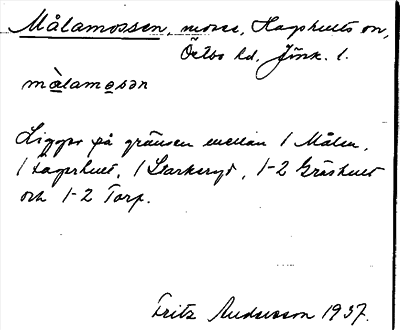 Målamossen, mosse, Hagshults sn,
Östbo hd, Jönk. l.
målamosən
Ligger på gränsen mellan 1 Målen,
1 Lagshult, 1 Starkeryd, 1-2 Gräshult
och 1-2 Torp.
Fritz Andersson 1937.